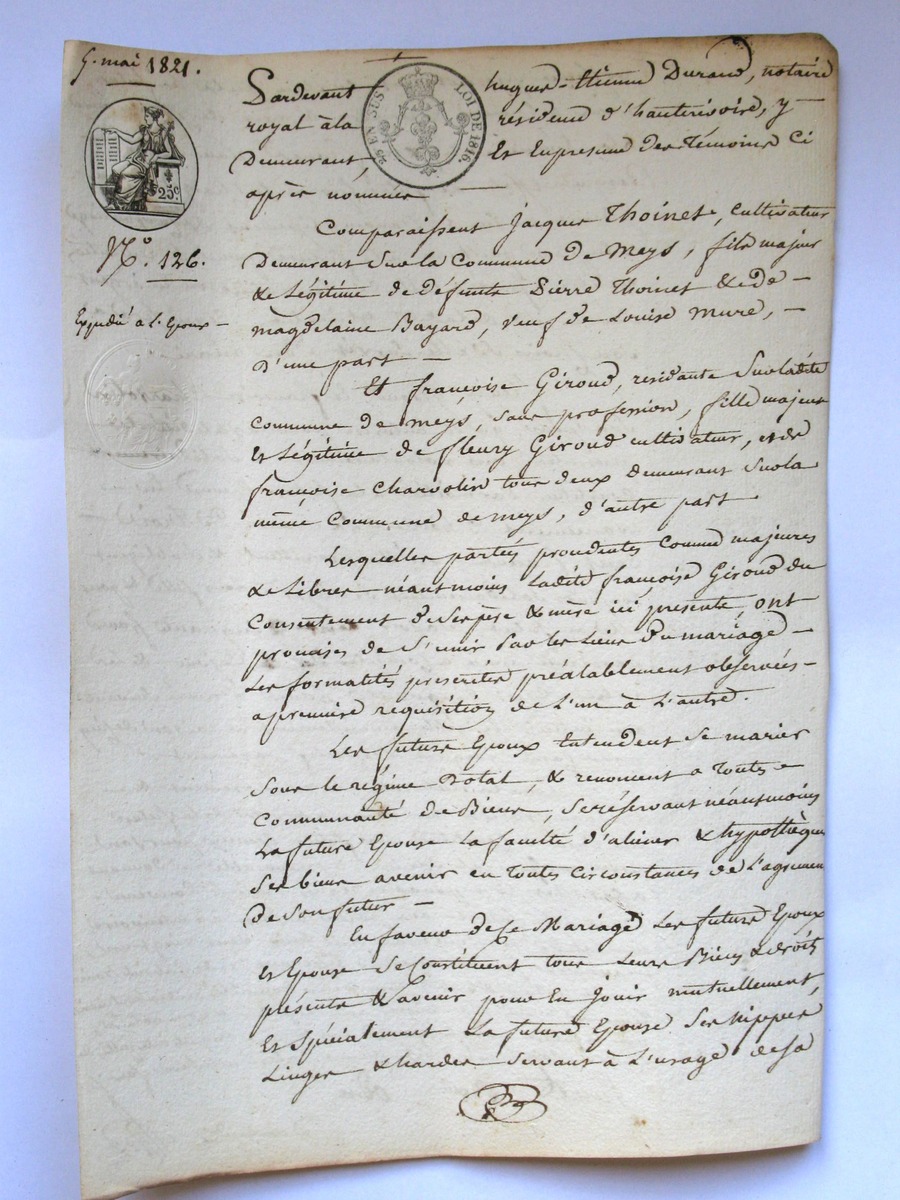 5. mai 1821.
25 EN SUS
LOI DE 1816.
25c.
N°. 126.
Expedié a L'Epoux —
Pardevant hugues-Etienne Durand, notaire
royal à la résidence d'hauterivoire, y
Demeurant, Et En presence des Témoins Ci
après nommés —
Comparaissent Jacques Thoinet, cultivateur
Demeurant Sur la Commune De Meys, fils majeur
& Légitime de défunts Pierre Thoinet & de —
magdelaine Bayard, veuf de Louise Mure, —
D'une part —
Et françoise Giroud, residante Sur ladite
Commune de meys, sans profession, fille majeure
Et Légitime de fleury Giroud cultivateur, et de
françoise Charvolin tous deux demeurant Sur la
même Commune de meys, d'autre part
Lesquelles parties procedentes Comme majeures
& Libres néantmoins Ladite françoise Giroud du
Consentement de Ses père & mère ici présents, ont
promises de S'unir Par les Liens Du mariage —
Les formalités prescrites préalablement observées —
a premiere requisition de L'un à L'autre.
Les future Epoux Entendent Se marier
Sous le régime Dotal, & renoncent a Toutes
Communauté de Biens, Se réservant néantmoins
La future Epouse La faculté d'aliéner & hypothèquer
Ses biens avenir en Toutes Circonstances de L'agrement
De Son futur —
En faveur de Ce Mariage Les future Epoux
Et Epouse Se Constituent tous Leurs Biens & droits
présents & avenir pour En Jouir mutuellement,
Et Spécialement La future Epouse Ses nippes
Linges & hardes Servant à L'usage de Sa